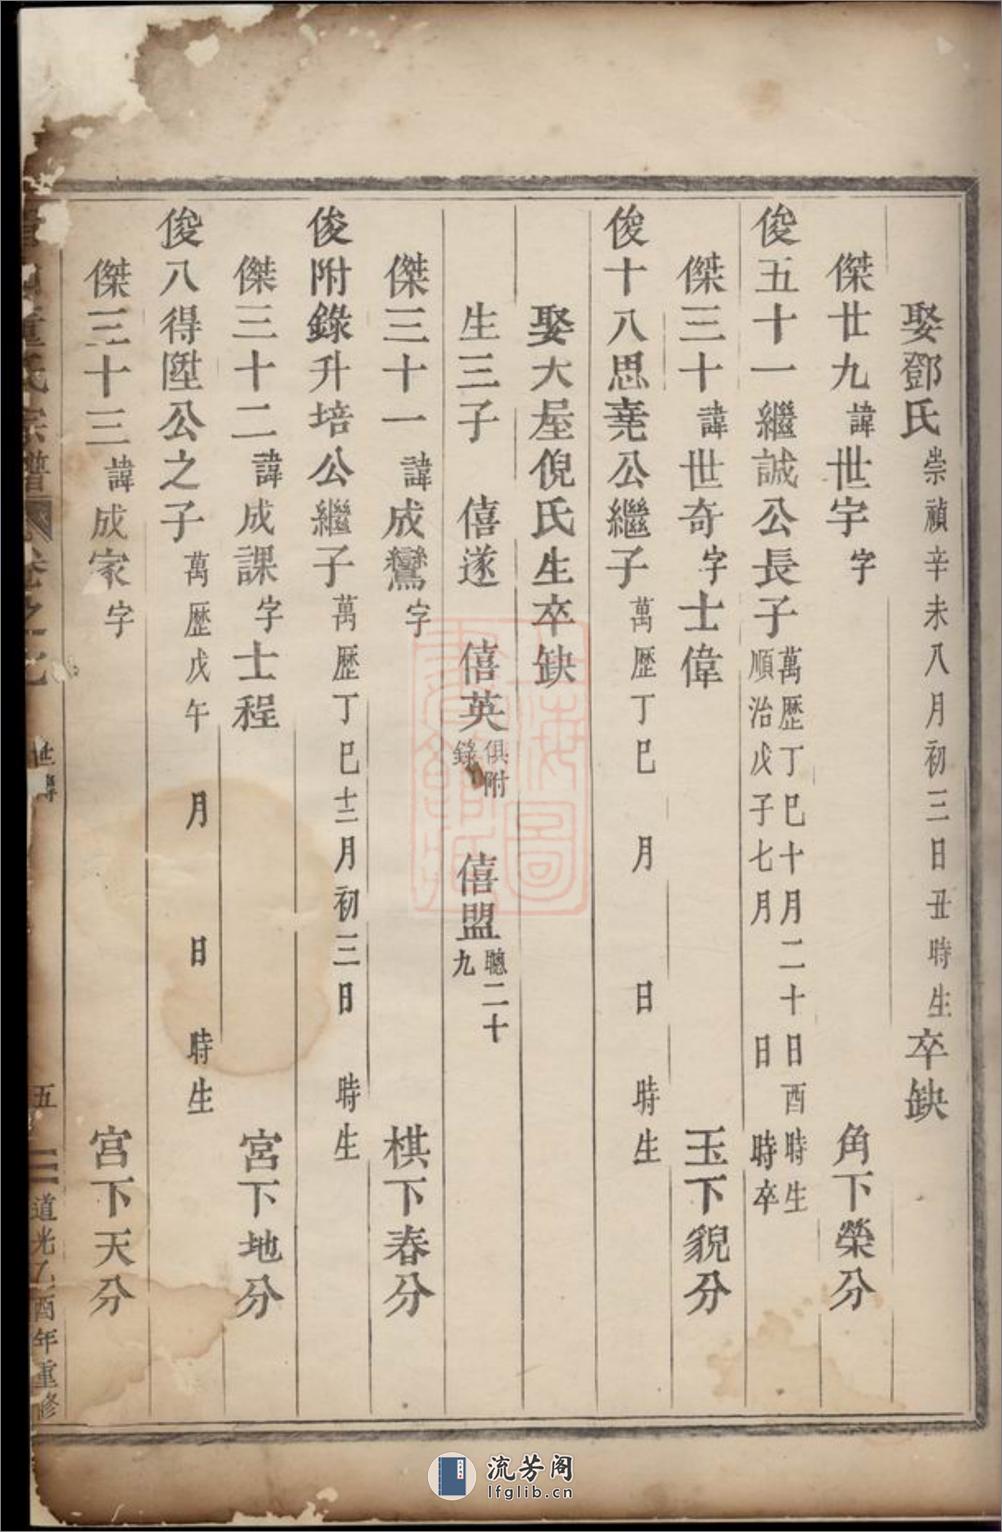 娶鄧氏崇禎辛未八月初三日丑時生卒缺
傑廿九諱世宇字 角下榮分
俊五十一繼誠公長子萬歷丁巳十月二十日酉時生
順治戊子七月 日 時卒
傑三十諱世奇字士偉 玉下貌分
俊十八思堯公繼子萬歷丁巳 月 日 時生
娶大屋倪氏生卒缺
生三子 僖遂 僖英俱附錄 僖盟聰二十九
傑三十一諱成鸞字 棋下春分
俊附錄升培公繼子萬歷丁巳十二月初三日 時生
傑三十二諱成課字士程 宮下地分
俊八得陞公之子萬歷戊午 月 日 時生
傑三十三諱成家字 宮下天分
童氏宗譜 卷之七 世傳 五 道光乙酉年重修
流芳阁
lfglib.cn